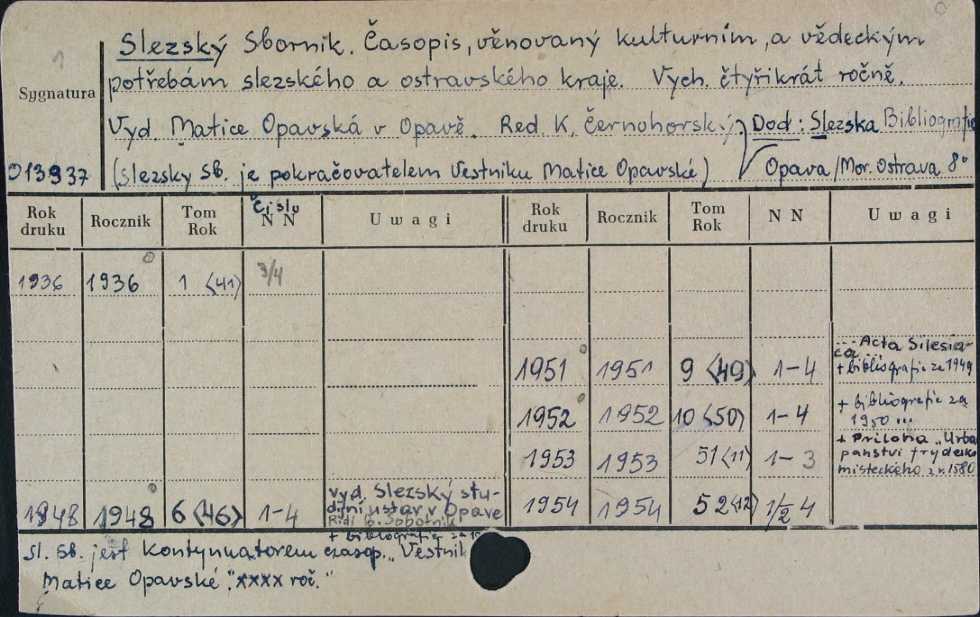 1
Slezský Sborník. Časopis, věnovaný kulturním, a vědeckým
potřebám slezského a ostravského kraje. Vych. čtyřikrát ročně.
Sygnatura
Vyd. Matice Opavská v Opavě. Red. K. Černohorský, Dod: Slezska Bibliografie
013937 (slezsky sb. je pokračovatelem Vestniku Matice Opavské) Opava/Mor. Ostrava 8°
Rok druku Rocznik Tom Rok Čislo N N Uwagi Rok druku Rocznik Tom Rok N N Uwagi
1936 1936 1 <41> 3/4
...Acta Silesia-
ca...
1951 1951 9 <49> 1-4 + bibliografie za 1949
1952 1952 10 <50> 1-4 + bibliografie za
1950 ...
1953 1953 51 <11> 1-3 + Priloha "Urba
panství frydecko
místeckého z r. 1580
1948 1948 6 <46> 1-4 vyd. Slezský stu-
dijní ustav v Opave
Řídí B. Sobotník
+ bibliografie za
1954 1954 52 <12> 1/2 4
sl. sb. jest kontynuatorem czasop. "Vestnik
Matice Opavské". "xxxx roč."